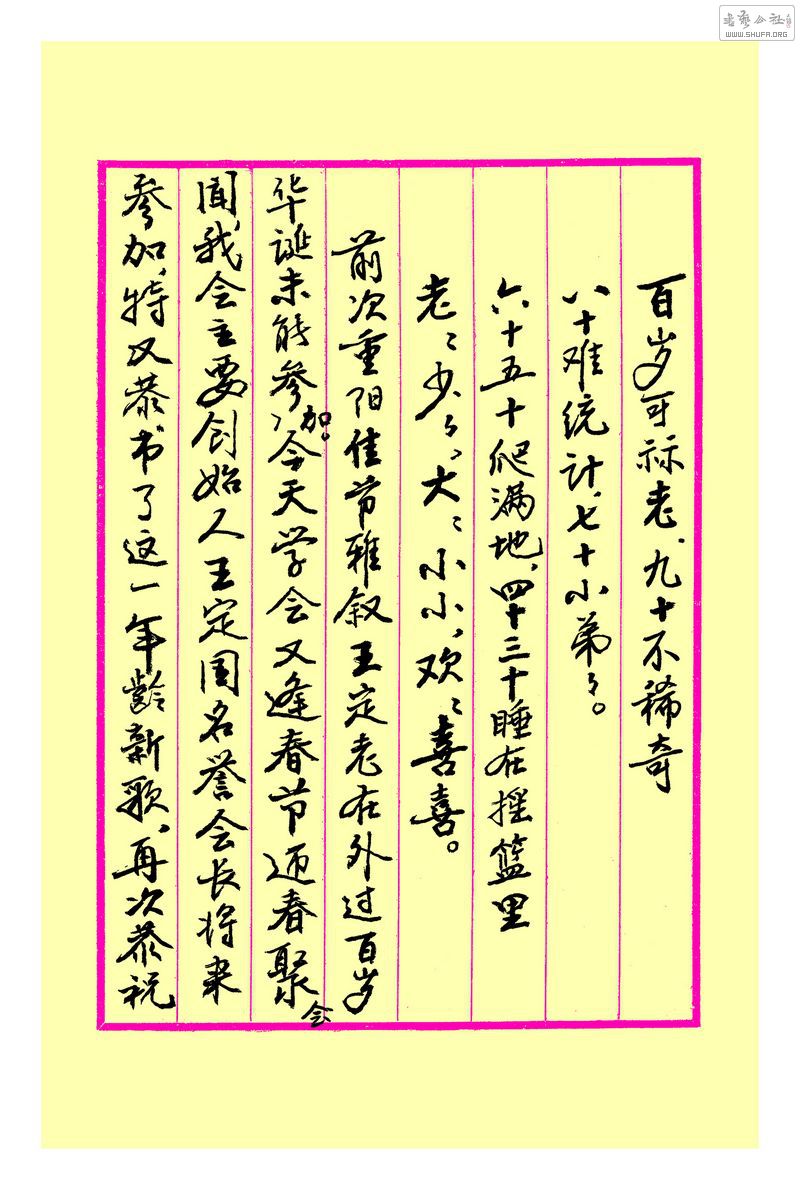 百岁可称老、九十不稀奇
八十难统计、七十小弟々。
六十五十爬满地、四十三十睡在摇篮里
老々少々、大々小小、欢々喜喜。
前次重阳佳节雅叙王定老在外过百岁
华诞未能参加。今天学会又逢春节迎春聚会
闻、我会主要创始人王定国名誉会长将来
参加、特又恭书了这一年龄新歌、再次恭祝
书艺公社
WWW.SHUFA.ORG